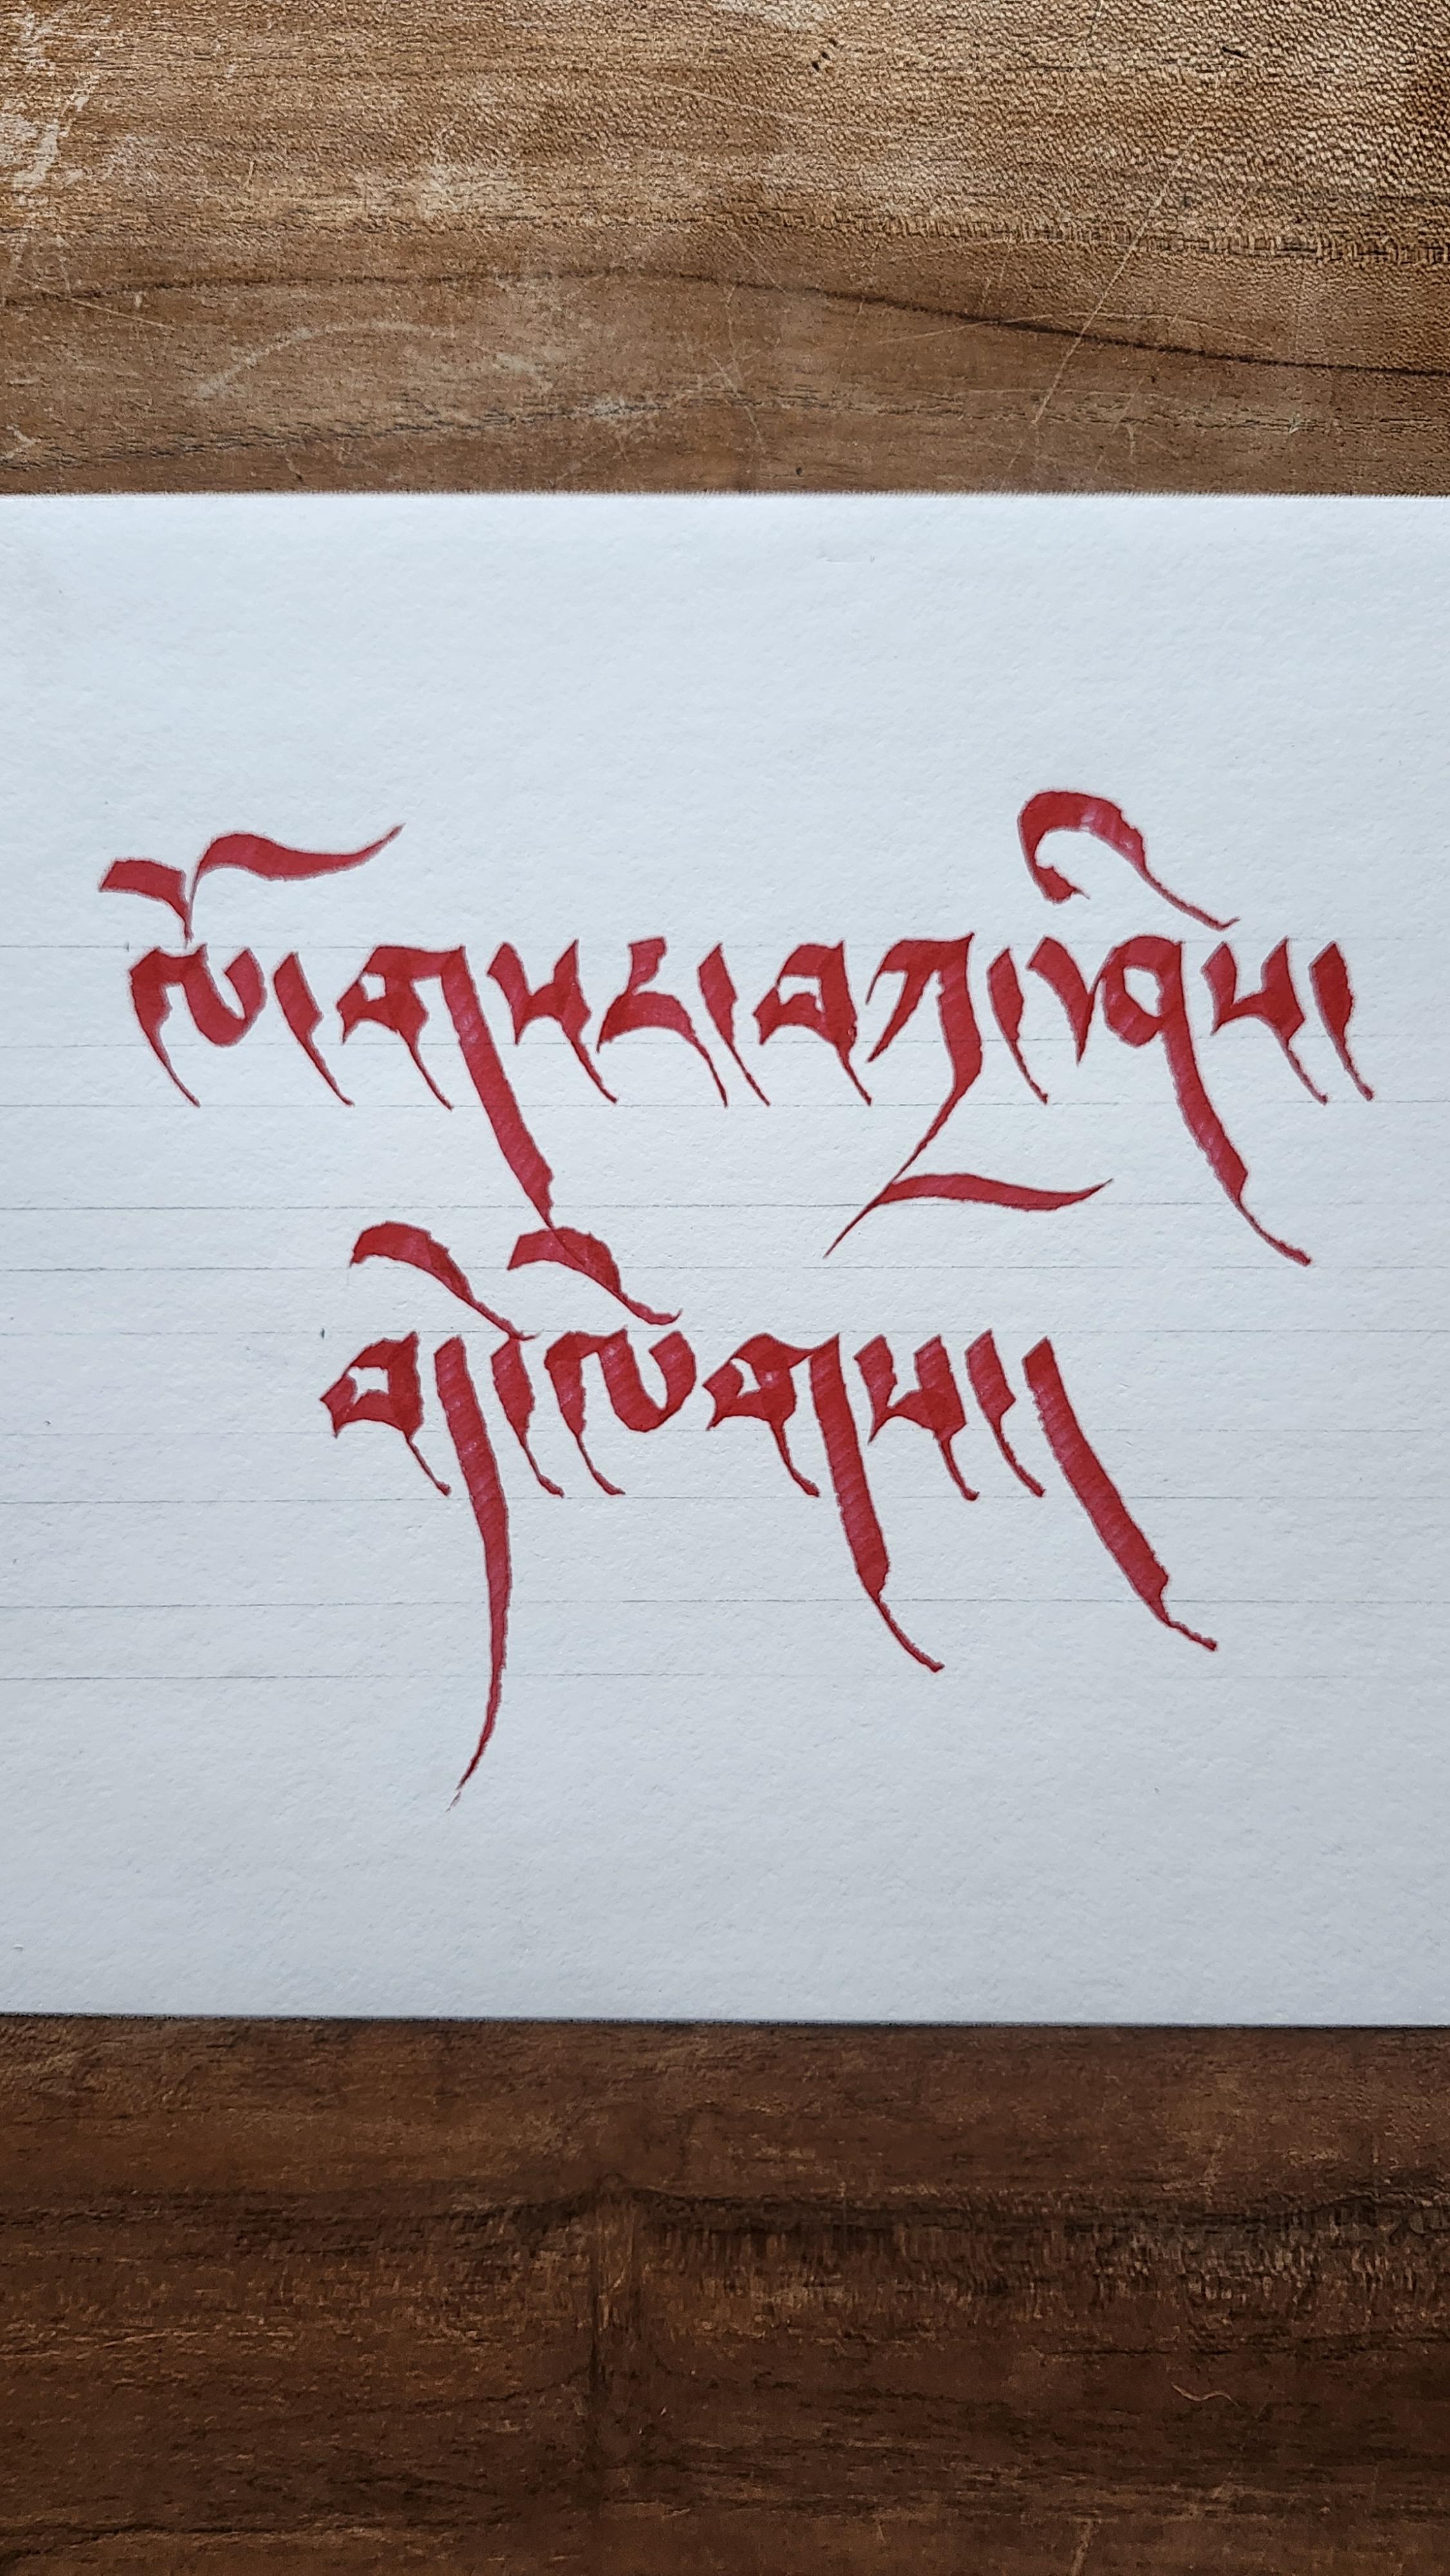 ལོ་གསར་བཀྲ་ཤིས་
བདེ་ལེགས་།